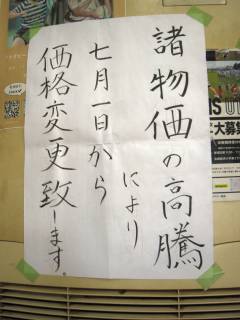 諸物価の高騰
により
七月一日から
価格変更致します。
大募集